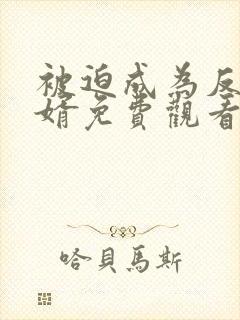 被迫成為反
婿免費觀看
哈貝馬斯